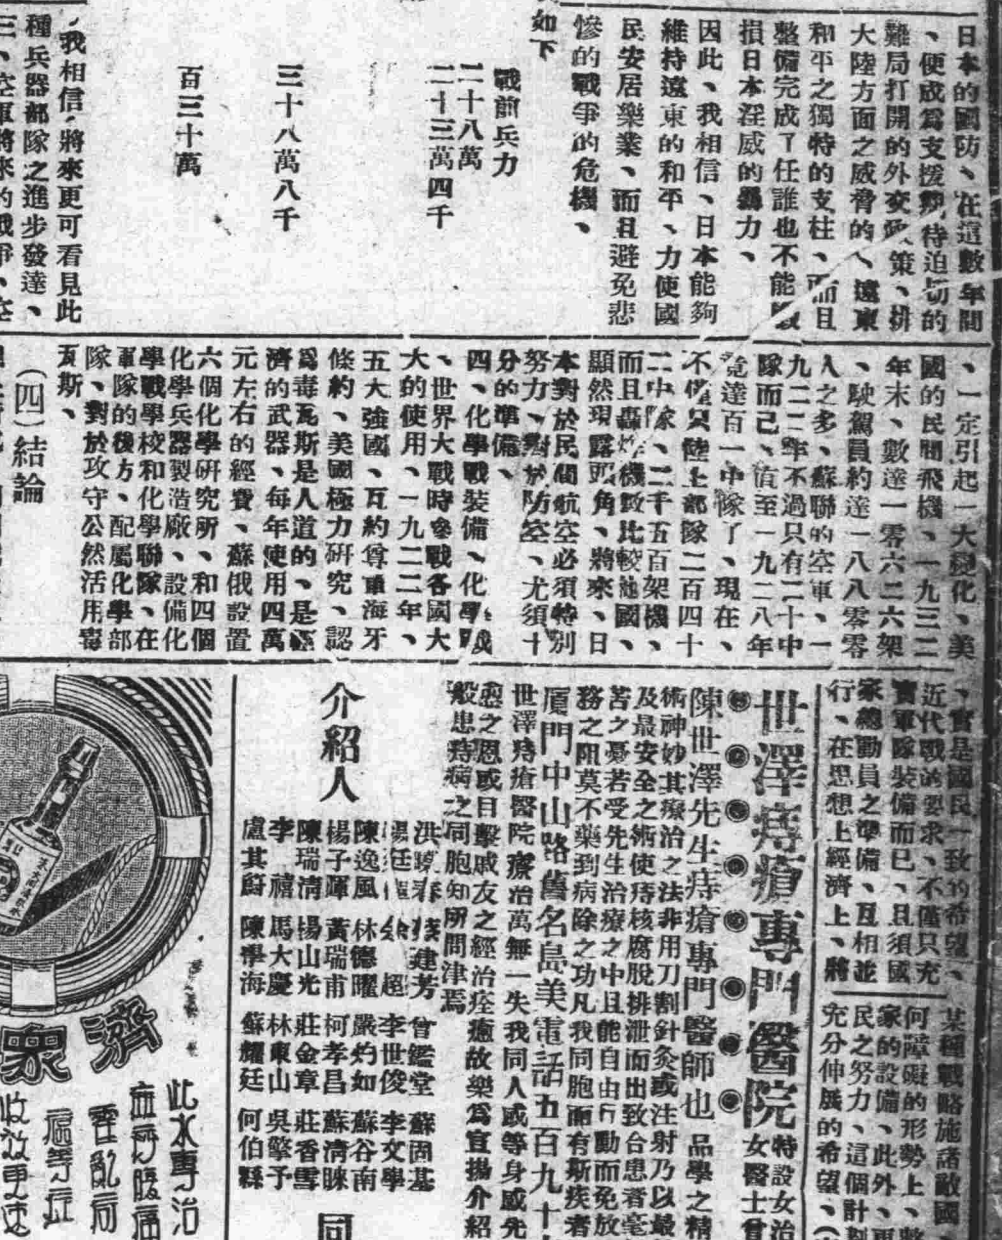 日本的國防、在這數年間
、便成爲支援 待迫切的
難局打開的外交政策、排
大陸方面之威脅的、遠東
和平之獨特的支柱、而且
整備完成了任誰也不能毀
損日本淫威的暴力、
因此、我相信、日本能夠
維持遠東的和平、力使國
民安居樂業、而且避免悲
慘的戰爭的危機、
如下
戰前兵力
二十八萬
二十三萬四千
三十八萬八千
百三十萬
、我相信、將來更可看見此
種兵器部隊之進步發達、
三、空軍將來的戰爭、空
、一定引起一大變化、美
國的民間飛機、一九三二
年末、數達一零六二六架
、駛駕員約達一八八零零
人之多、蘇聯的空軍、一
九二二年不過只有二十中
隊而已、值至一九二八年
竟達百一中隊了、現在、
不僅只陸上部隊二百四十
二中隊、二千五百架機、
而且轟炸機數比較他國、
顯然現露頭角、將來、日
本對於民間航空必須特別
努力、對於防空、尤須十
分的準備、
四、化學戰裝備、化學戰
、世界大戰時參戰各國大
大的使用、一九二二年、
五大強國、互約尊重海牙
條約、美國極力研究、認
爲毒瓦斯是人道的、是經
濟的武器、每年使用四萬
元左右的經費、蘇俄設置
六個化學研究所、和四個
化學兵器製造廠、設備化
學戰學校和化學聯隊、在
軍隊的後方、配屬化學部
隊、對於攻守公然活用毒
瓦斯、
(四)結論
、實是國民一致的希望、
近代戰的要求、不僅只充
實軍隊裝備而已、且須國
家總動員之準備、互相並
行、在思想上經濟上、將
某種戰略施諸敵國
何障礙的形勢上、
家的設備、此外、更
民之努力、這個計劃
充分伸展的希望、
世澤痔瘡專門醫院
特設女治
女醫士
陳世澤先生痔瘡專門醫師也品學之精
術神妙其療治之法非用刀割針灸或注射乃以最
及最安全之術使痔核腐脫排泄而出致台患者毫
苦之憂若受先生治療之中且能自由行動而免放
務之阻莫不藥到病除之功凡我同胞而有斯疾者
厦門中山路舊名島美電話五百九十
世澤痔瘡醫院療治萬無一失我同人或等身感先
愈之恩或目擊戚友之經治痊癒故樂爲宣揚介紹
般患痔瘡之同胞知所問津焉
介紹人
洪曉春 建芳 曾鑑堂 蘇固基
楊廷 余超 李世俊 李文學
陳逸風 林德曜 嚴灼如 蘇谷南
楊子暉 黃瑞甫 柯孝昌 蘇淸睞
陳瑞淸 楊山光 莊金章 莊香雪
李禧 馬大慶 林東山 吳擎予
盧其蔚 陳舉海 蘇耀廷 何伯縣
同
濟衆
此水專治
痧腹痛
霍亂病
等症
收效更速